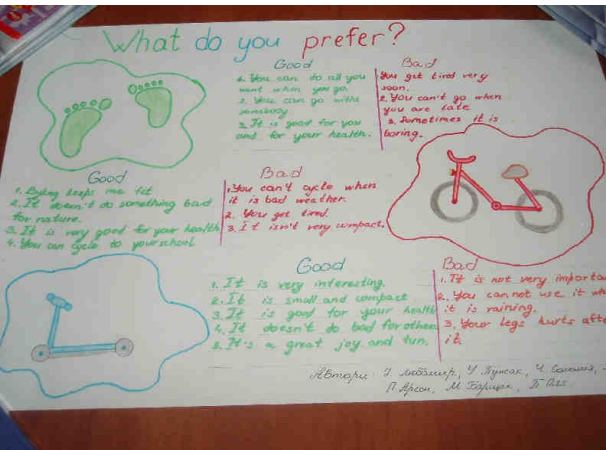 What do you prefer?
Good
1. You can do all you
want when you go.
2. You can go with
somebody
3. It is good for you
and for your health.
Bad
You get tired very
soon.
2. You can't go when
you are late
3. Sometimes it is
boring.
Good
1. keeps me fit
2. It doesn't do something bad
for nature.
3. It is very good for your health
4. You can cycle to your school
Bad
1. You can't cycle when
it is bad weather.
2. You get tired.
3. It isn't very compact.
Good
1. It is very interesting.
2. It is small and compact
3. It is good for your health
4. It doesn't do bad for others
5. It's a great joy and fun.
Bad
1. It is not very importa
2. You can not use it wh
it is raining.
3. Your legs hurts afte
it
Автори: